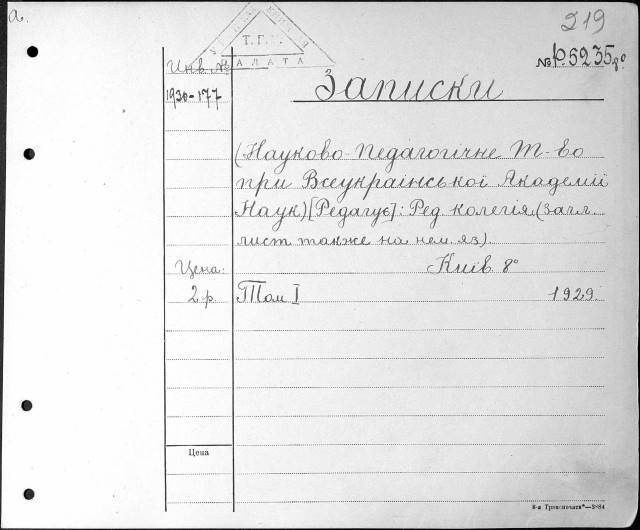 а.
219
Т.Г.К.
ПАЛАТА
№ р.5235 8°
Инв. №
1930-177
Записки
(Науково-Педагогічне Т-во
при Всеукраінської Академії
Наук) [Редагує]: Ред. колегія (Загл.
лист также на нем. яз).
Київ 8°
Цена:
2 р.
Том I
1929.
Цена